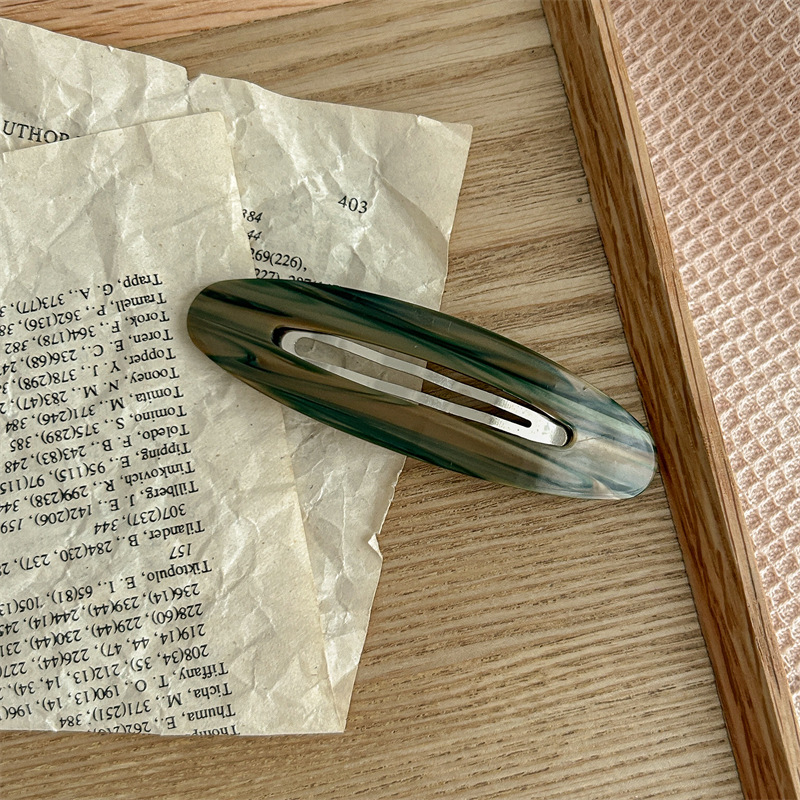 UTHOR
403
384
44
269(226),
227), 287(
Thomp
Thuma, E., 262(21
Ticha, M., 371(251), 384
Tiffany, T. O., 190(13, 14), 196(1
208(34, 35), 212(13, 14, 34,
219(14, 44, 47), 226(44), 227(
228(60), 229(44), 230(44), 231
236(14), 239(44), 244(14), 245
Tiktopulo, E. I., 65(81), 105(13
157
Tilander, B., 284(230, 237), 2
307(237), 344
Tillberg, J. E., 142(206), 159
Timkovich, R., 299(238),
Tipping, E., 95(115), 97(115
Toledo, F. B., 243(83), 248
Tomino, S., 375(289), 385
Tomita, M., 371(246), 384
Tooney, N. M., 283(47), 2
Topper, Y. J., 378(298), 3
Toren, E. C., 236(68), 24
Torok, F., 364(178), 382
Tramell, P., 362(136), 38
Trapp, G. A., 373(77), 3